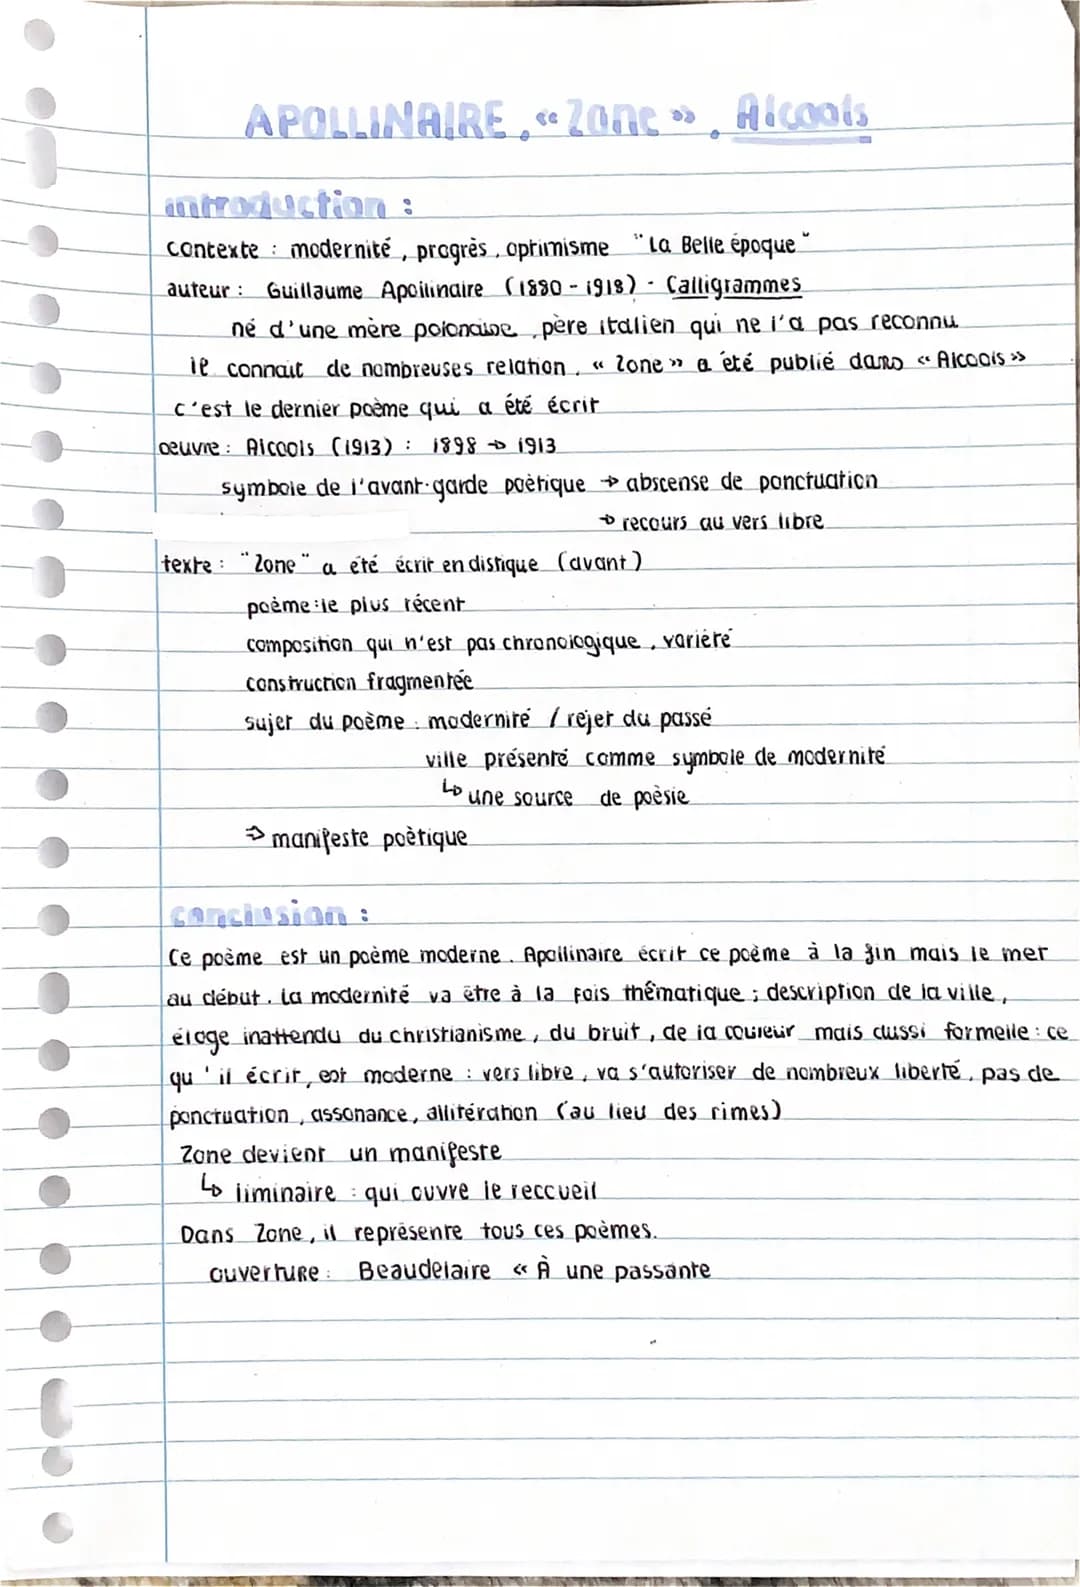 APOLLINAIRE, « Zone », Alcools
introduction :
contexte : modernité, progrès, optimisme "La Belle époque"
auteur : Guillaume Apollinaire (1880 - 1918) - Calligrammes
né d'une mère polonaise, père italien qui ne l'a pas reconnu
il connait de nombreuses relation. « Zone » a été publié dans « Alcools »
c'est le dernier poème qui a été écrit
œuvre : Alcools (1913) : 1898 → 1913
symbole de l'avant-garde poètique → abscense de ponctuation
→ recours au vers libre
texte : "Zone" a été écrit en distique (avant)
poème : le plus récent
composition qui n'est pas chronologique, variété
construction fragmentée
sujet du poème : modernité / rejet du passé
ville présenté comme symbole de modernité
↳ une source de poèsie
⇒ manifeste poètique
conclusion :
Ce poème est un poème moderne. Apollinaire écrit ce poème à la fin mais le met
au début. La modernité va être à la fois thêmatique ; description de la ville,
éloge inattendu du christianisme, du bruit, de la couleur mais aussi formelle : ce
qu'il écrit, est moderne : vers libre, va s'autoriser de nombreux liberté, pas de
ponctuation, assonance, allitération (au lieu des rimes)
Zone devient un manifeste
↳ liminaire : qui ouvre le reccueil
Dans Zone, il représente tous ces poèmes.
ouverture : Beaudelaire « À une passante